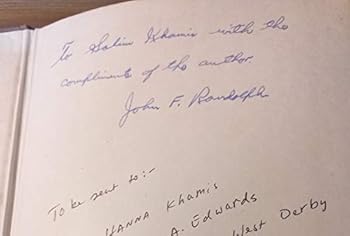 To Salim Khamis with the
compliments of the author
John F. Randolph
To be sent to:-
HANNA Khamis
A. Edwards
West Derby